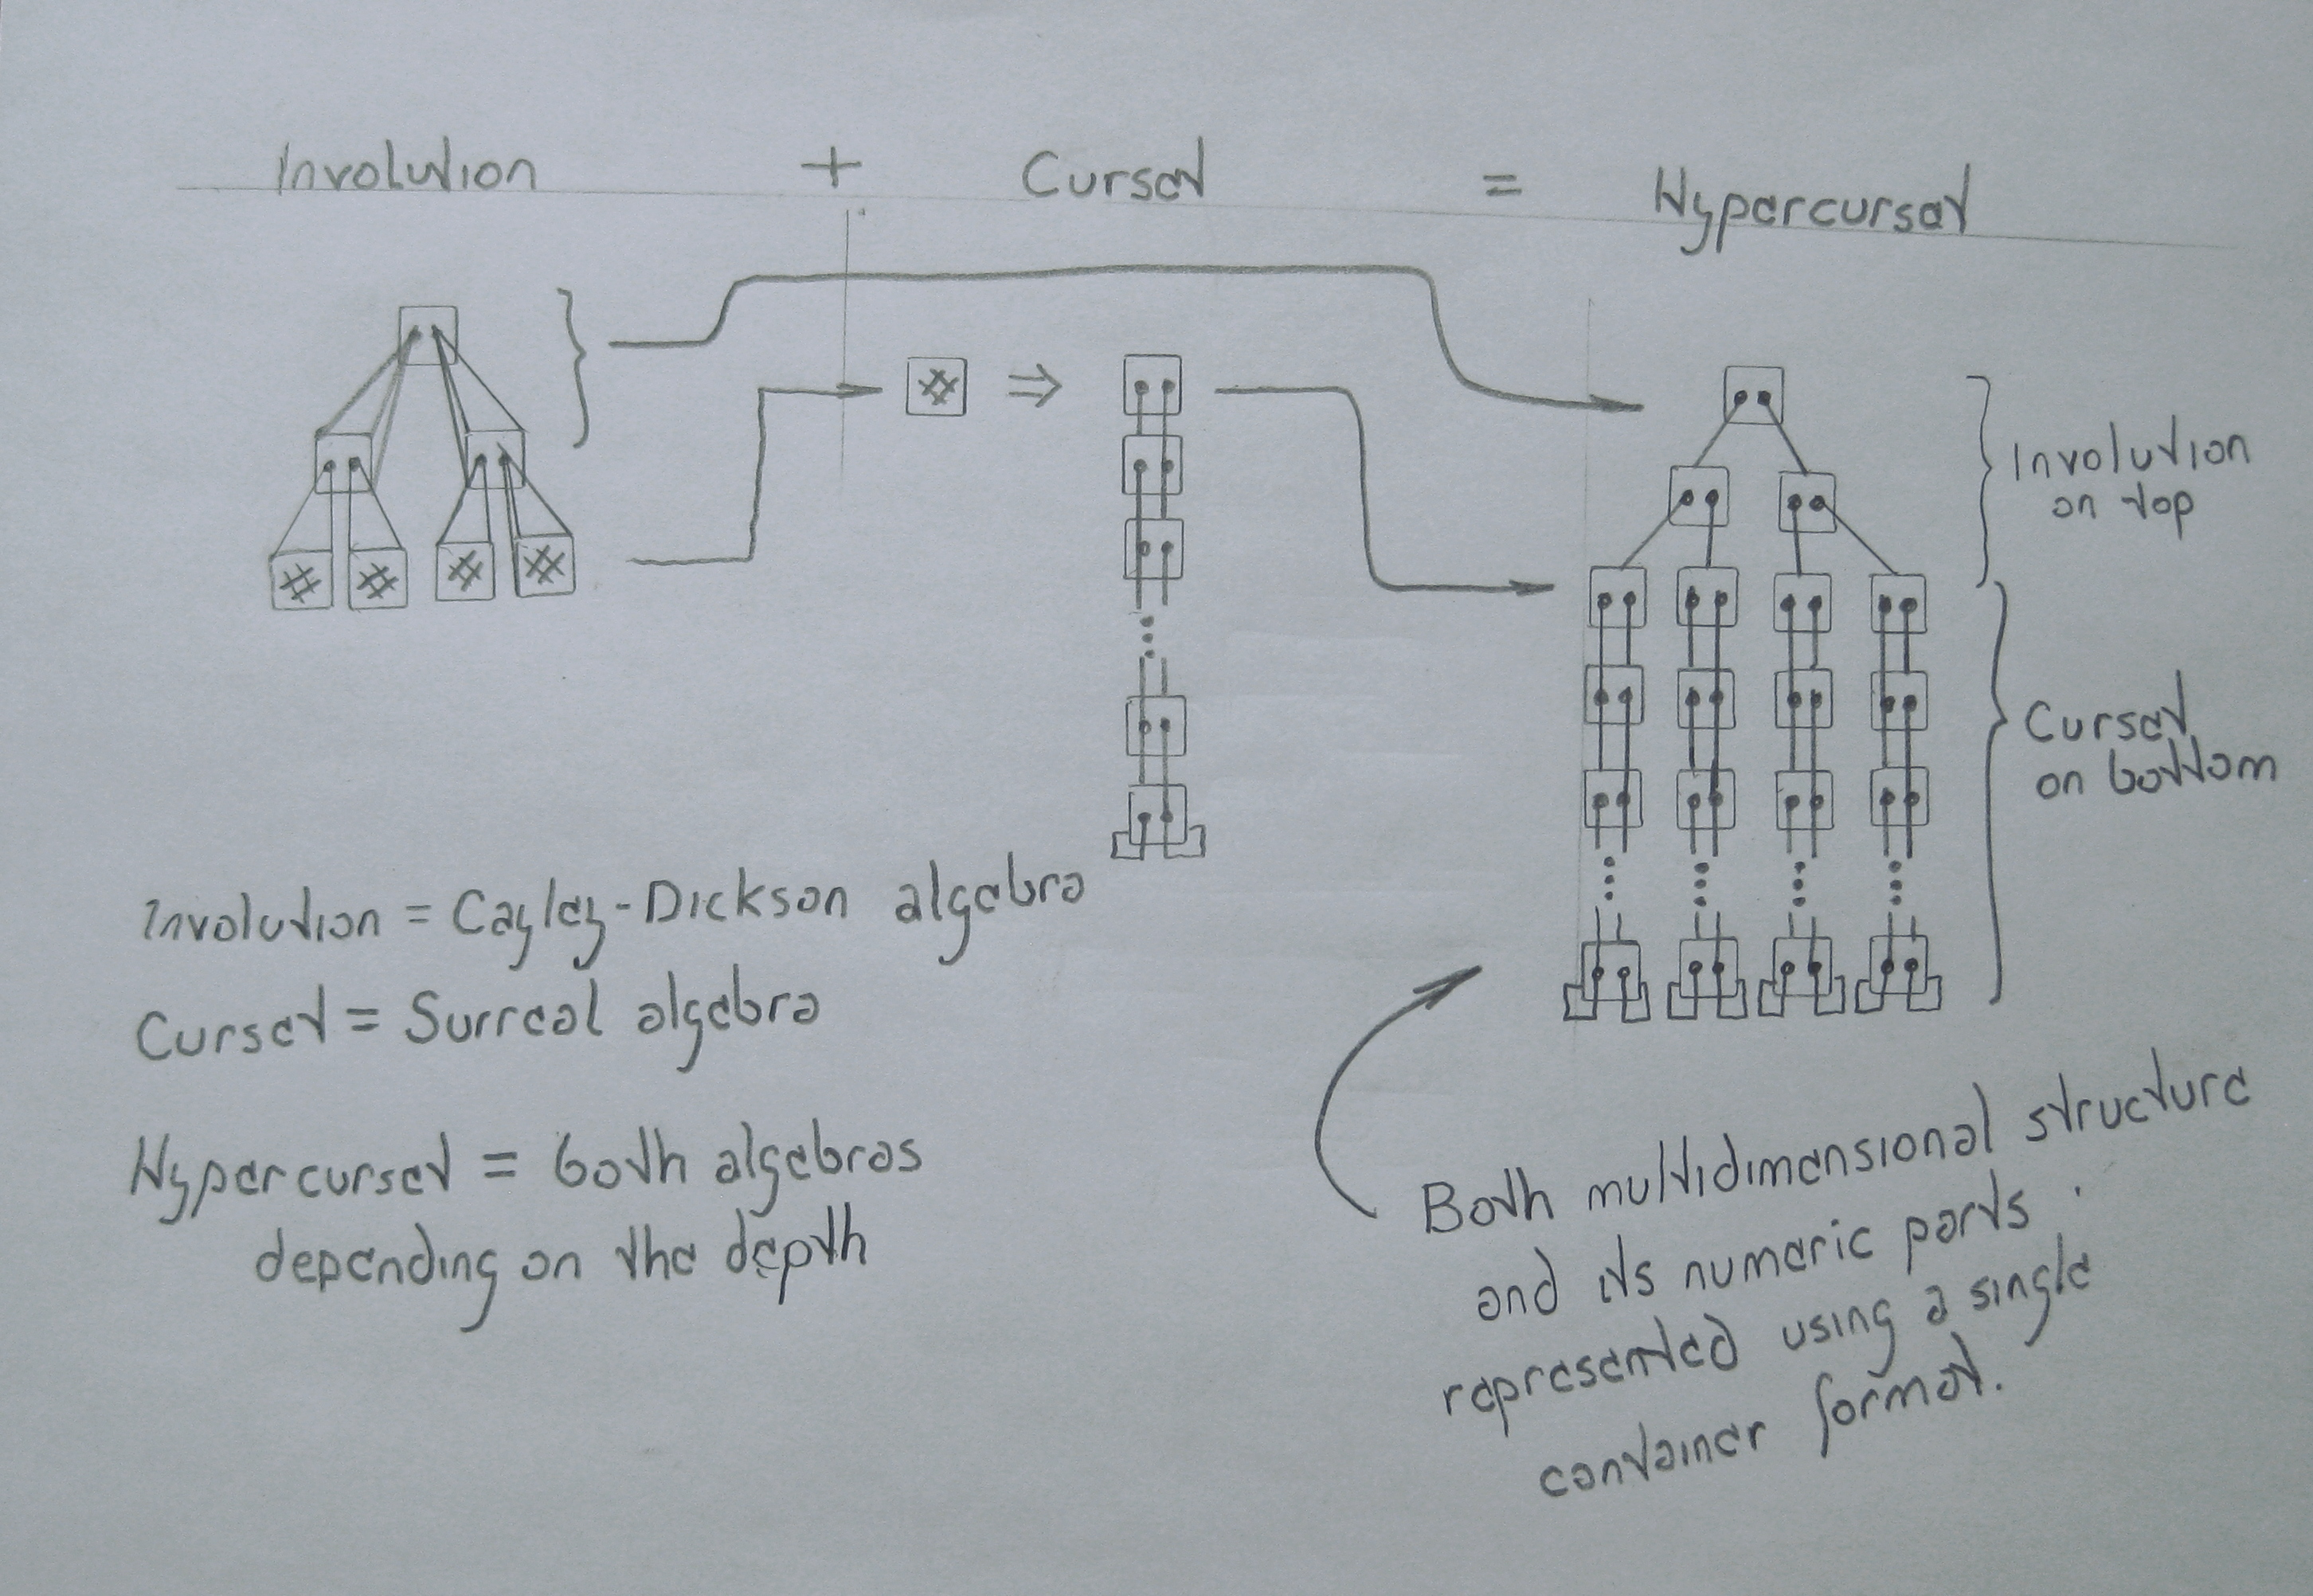 Involution + Curset = Hypercurset
Involution
on top
Curset
on bottom
Involution = Cayley-Dickson algebra
Curset = Surreal algebra
Hypercurset = both algebras
depending on the depth
Both multidimensional structure
and its numeric parts
represented using a single
container format.